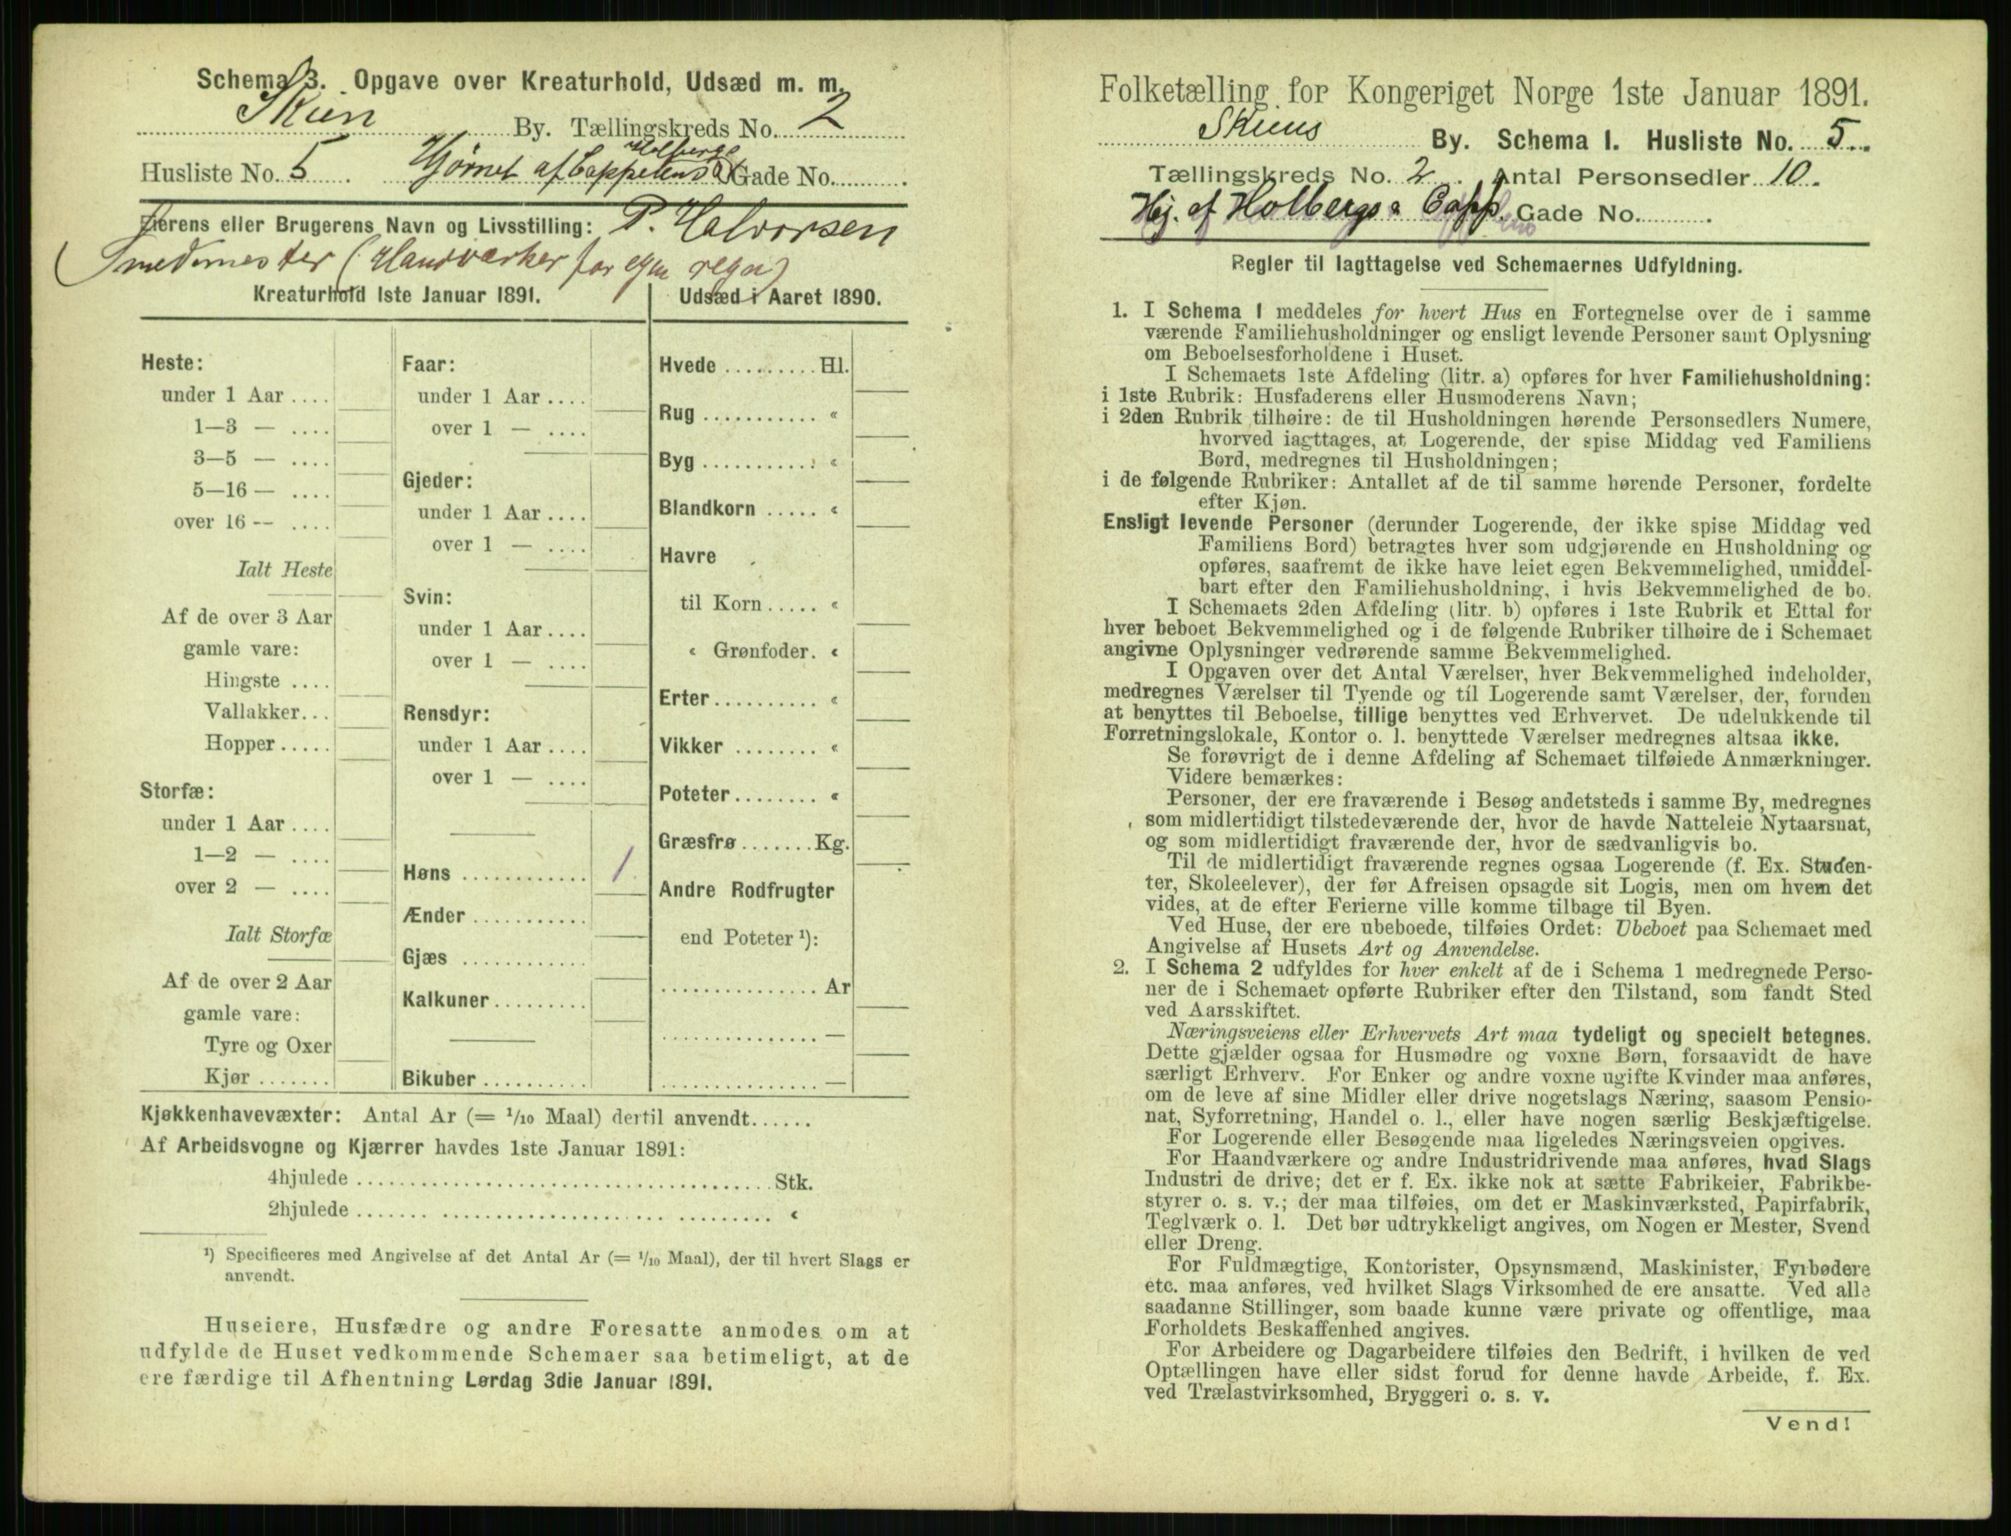 Schema 3. Opgave over Kreaturhold, Udsæd m. m.
Skien By. Tællingskreds No. 2
Husliste No. 5 Hjørnet af Cappelens & Holbergs Gade No.
Eierens eller Brugerens Navn og Livsstilling: P. Halvorsen
Smedemester (Handværker for egen regn)
Kreaturhold 1ste Januar 1891.
Heste:
under 1 Aar ....
1—3 — ....
3—5 — ....
5—16 — ....
over 16 -- ....
Ialt Heste
Af de over 3 Aar
gamle vare:
Hingste ....
Vallakker...
Hopper .....
Storfæ:
under 1 Aar ....
1—2 — ....
over 2 — ....
Ialt Storfæ
Af de over 2 Aar
gamle vare:
Tyre og Oxer
Kjør .......
Faar:
under 1 Aar ....
over 1 — ....
Gjeder:
under 1 Aar ....
over 1 — ....
Svin:
under 1 Aar....
over 1 — ....
Rensdyr:
under 1 Aar ....
over 1 — ....
Høns ............ 1
Ænder ...........
Gjæs ............
Kalkuner.........
Bikuber ..........
Udsæd i Aaret 1890.
Hvede ......... Hl.
Rug ........... «
Byg ........... «
Blandkorn ..... «
Havre
til Korn ..... «
« Grønfoder. «
Erter.......... «
Vikker ........ «
Poteter........ «
Græsfrø ....... Kg.
Andre Rodfrugter
end Poteter ¹):
............... Ar
............... —
............... —
Kjøkkenhavevæxter: Antal Ar (= 1/10 Maal) dertil anvendt......
Af Arbeidsvogne og Kjærrer havdes 1ste Januar 1891:
4hjulede ...................................... Stk.
2hjulede ...................................... «
¹) Specificeres med Angivelse af det Antal Ar (= 1/10 Maal), der til hvert Slags er
anvendt.
Huseiere, Husfædre og andre Foresatte anmodes om at
udfylde de Huset vedkommende Schemaer saa betimeligt, at de
ere færdige til Afhentning Lørdag 3die Januar 1891.
Folketælling for Kongeriget Norge 1ste Januar 1891.
Skiens By. Schema I. Husliste No. 5
Tællingskreds No. 2 Antal Personsedler 10.
Hj. af Holbergs & Capp. Gade No.
Regler til Iagttagelse ved Schemaernes Udfyldning.
1. I Schema 1 meddeles for hvert Hus en Fortegnelse over de i samme
værende Familiehusholdninger og ensligt levende Personer samt Oplysning
om Beboelsesforholdene i Huset.
I Schemaets 1ste Afdeling (litr. a) opføres for hver Familiehusholdning:
i 1ste Rubrik: Husfaderens eller Husmoderens Navn;
i 2den Rubrik tilhøire: de til Husholdningen hørende Personsedlers Numere,
hvorved iagttages, at Logerende, der spise Middag ved Familiens
Bord, medregnes til Husholdningen;
i de følgende Rubriker: Antallet af de til samme hørende Personer, fordelte
efter Kjøn.
Ensligt levende Personer (derunder Logerende, der ikke spise Middag ved
Familiens Bord) betragtes hver som udgjørende en Husholdning og
opføres, saafremt de ikke have leiet egen Bekvemmelighed, umiddel-
bart efter den Familiehusholdning, i hvis Bekvemmelighed de bo.
I Schemaets 2den Afdeling (litr. b) opføres i 1ste Rubrik et Ettal for
hver beboet Bekvemmelighed og i de følgende Rubriker tilhøire de i Schemaet
angivne Oplysninger vedrørende samme Bekvemmelighed.
I Opgaven over det Antal Værelser, hver Bekvemmelighed indeholder,
medregnes Værelser til Tyende og til Logerende samt Værelser, der, foruden
at benyttes til Beboelse, tillige benyttes ved Erhvervet. De udelukkende til
Forretningslokale, Kontor o. l. benyttede Værelser medregnes altsaa ikke.
Se forøvrigt de i denne Afdeling af Schemaet tilføiede Anmærkninger.
Videre bemærkes:
Personer, der ere fraværende i Besøg andetsteds i samme By, medregnes
som midlertidigt tilstedeværende der, hvor de havde Natteleie Nytaarsnat,
og som midlertidigt fraværende der, hvor de sædvanligvis bo.
Til de midlertidigt fraværende regnes ogsaa Logerende (f. Ex. Studen-
ter, Skoleelever), der før Afreisen opsagde sit Logis, men om hvem det
vides, at de efter Ferierne ville komme tilbage til Byen.
Ved Huse, der ere ubeboede, tilføies Ordet: Ubeboet paa Schemaet med
Angivelse af Husets Art og Anvendelse.
2. I Schema 2 udfyldes for hver enkelt af de i Schema 1 medregnede Perso-
ner de i Schemaet opførte Rubriker efter den Tilstand, som fandt Sted
ved Aarsskiftet.
Næringsveiens eller Erhvervets Art maa tydeligt og specielt betegnes.
Dette gjælder ogsaa for Husmødre og voxne Børn, forsaavidt de have
særligt Erhverv. For Enker og andre voxne ugifte Kvinder maa anføres,
om de leve af sine Midler eller drive nogetslags Næring, saasom Pensio-
nat, Syforretning, Handel o. l., eller have nogen særlig Beskjæftigelse.
For Logerende eller Besøgende maa ligeledes Næringsveien opgives.
For Haandværkere og andre Industridrivende maa anføres, hvad Slags
Industri de drive; det er f. Ex. ikke nok at sætte Fabrikeier, Fabrikbe-
styrer o. s. v.; der maa tilføies, om det er Maskinværksted, Papirfabrik,
Teglværk o. l. Det bør udtrykkeligt angives, om Nogen er Mester, Svend
eller Dreng.
For Fuldmægtige, Kontorister, Opsynsmænd, Maskinister, Fyrbødere
etc. maa anføres, ved hvilket Slags Virksomhed de ere ansatte. Ved alle
saadanne Stillinger, som baade kunne være private og offentlige, maa
Forholdets Beskaffenhed angives.
For Arbeidere og Dagarbeidere tilføies den Bedrift, i hvilken de ved
Optællingen have eller sidst forud for denne havde Arbeide, f. Ex.
ved Trælastvirksomhed, Bryggeri o. s. v.
Vend!